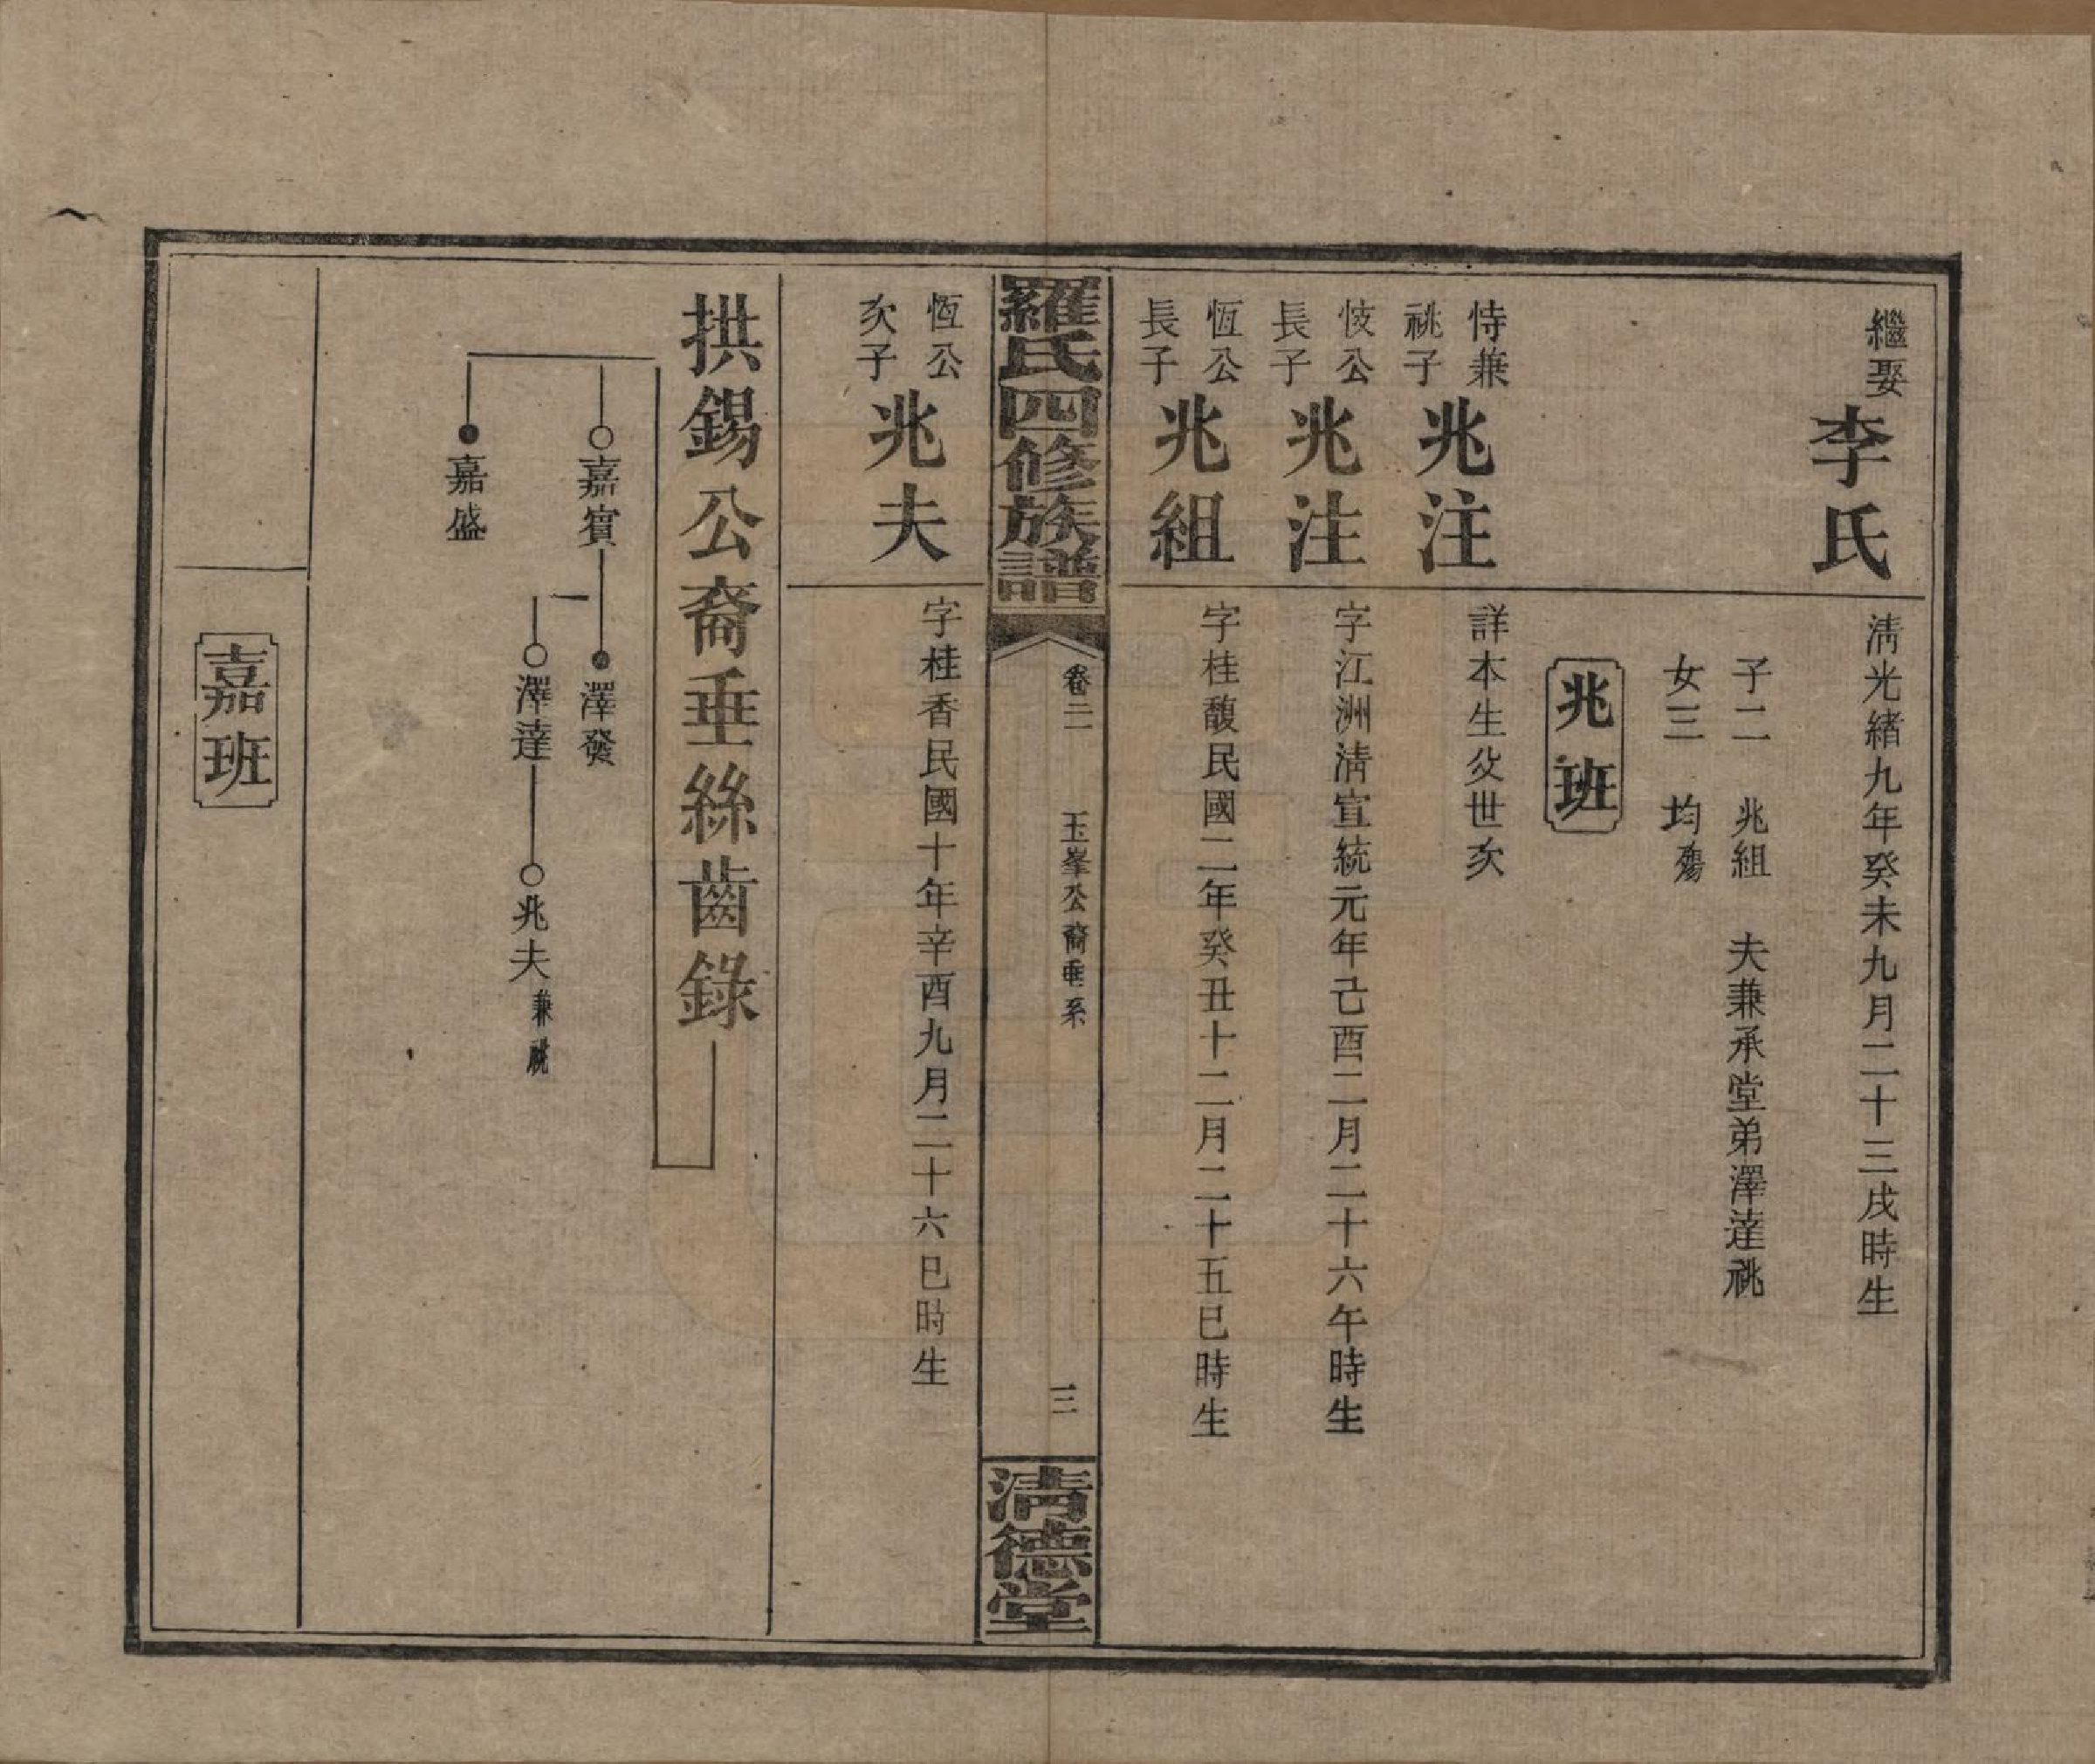 繼娶
李氏
清光緒九年癸未九月二十三戌時生
子二 兆組 夫兼承堂弟澤達祧
女三 均殤
兆班
恃兼
祧子
兆注
詳本生父世次
忮公
長子
兆注
字江洲清宣統元年己酉二月二十六午時生
恆公
長子
兆組
字桂馥民國二年癸丑十二月二十五巳時生
羅氏四修族譜
卷二 玉峯公裔垂系 三
清德堂
恆公
次子
兆夫
字桂香民國十年辛酉九月二十六巳時生
拱錫公裔垂絲齒錄
嘉賓 澤發
澤達 兆夫 兼祧
嘉盛
嘉班